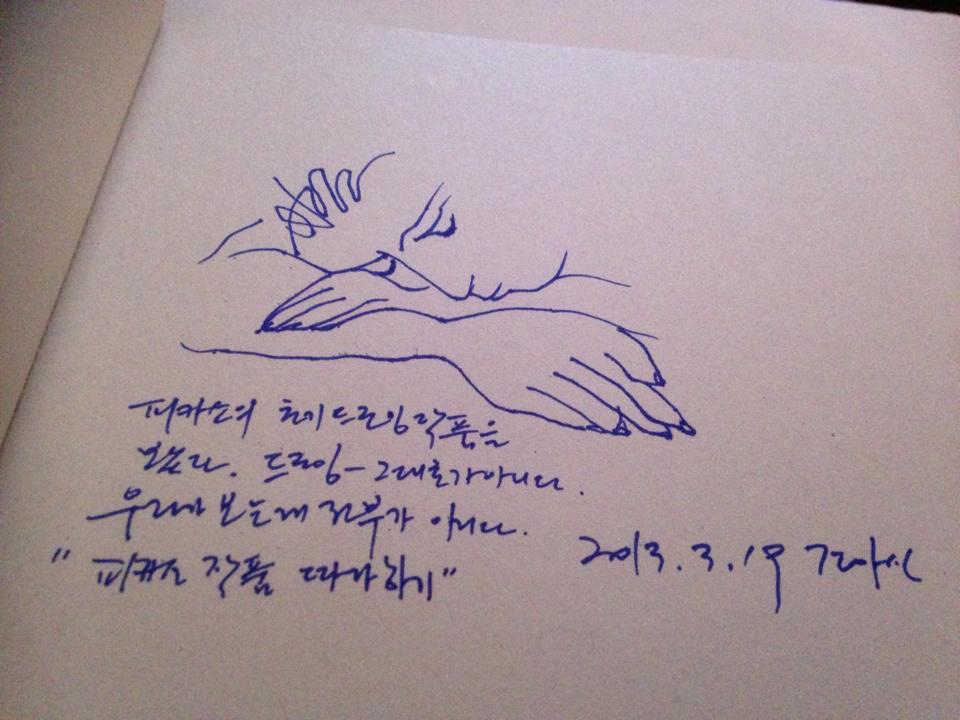 피카소의 초기 드로잉작품을
보노라. 드로잉- 그대로가 아니다.
우리가 보는게 전부가 아니다.
"피카소 작품 따라하기"
2013.3.19